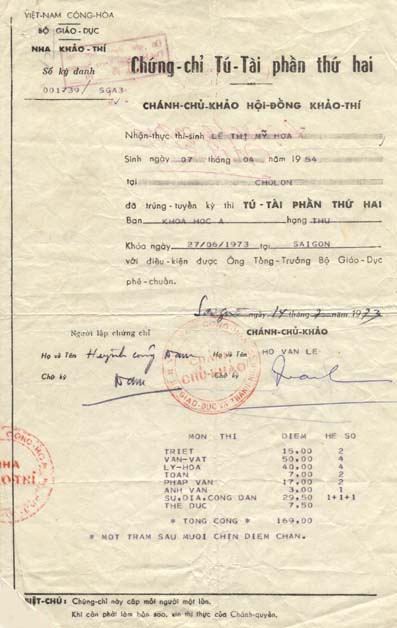 VIỆT-NAM CỘNG-HÒA
BỘ GIÁO-DỤC
NHA KHẢO-THÍ
Số ký danh
001739/ SGA3
Chứng-chỉ Tú-Tài phần thứ hai
CHÁNH-CHỦ-KHẢO HỘI-ĐỒNG KHẢO-THÍ
Nhận-thực thí-sinh LÊ THỊ MỸ HOA
Sinh ngày 07 tháng 04 năm 1954
tại CHOLON
đã trúng-tuyển kỳ thi TÚ-TÀI PHẦN THỨ HAI
Ban KHOA HOC A hạng THU
Khóa ngày 27/06/1973 tại SAIGON
với điều-kiện được Ông Tổng-Trưởng Bộ Giáo-Dục
phê-chuẩn.
Saigon ngày 14 tháng 7 năm 1973
Người lập chứng chỉ CHÁNH-CHỦ-KHẢO
Họ và Tên Huỳnh Công Nam Họ và Tên HO VAN LE
Chữ ký Nam Chữ ký
CHỦ-KHẢO
MON THI DIEM HE SO
TRIET 15,00 2
VAN-VAT 50,00 4
LY-HOA 40,00 4
TOAN 7,00 2
PHAP VAN 17,00 2
ANH VAN 3,00 1
SU,DIA,CONG DAN 29,50 1+1+1
THE DUC 7,50
* TONG CONG * 169,00
* MOT TRAM SAU MUOI CHIN DIEM CHAN.
VIỆT-CHÚ : Chứng-chỉ này cấp mỗi người một lần.
Khi cần phải làm bản sao, xin thị thực của Chánh-quyền.